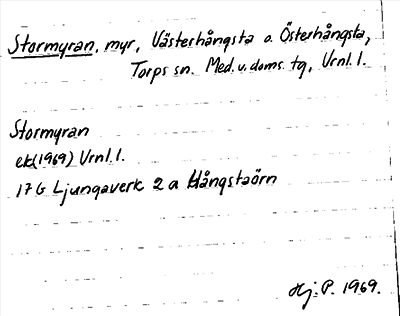 Stormyran, myr, Västerhångsta o. Österhångsta,
Torps sn. Med. v. doms. tg, Vrnl. l.
Stormyran
ek(1969) Vrnl. l.
17G Ljungaverk 2a Hångstaörn
Hj. P. 1969.